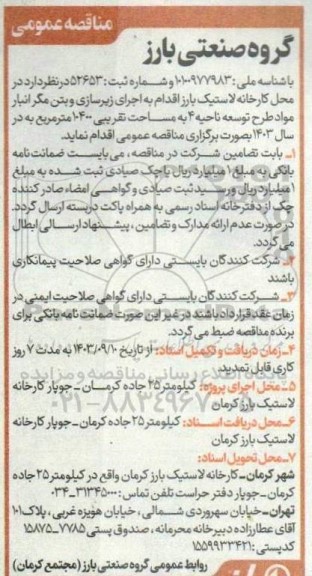 مناقصه عمومی
گروه صنعتی بارز
با شناسه ملی: ۱۰۱۰۰۹۷۷۹۸۳ و شماره ثبت: ۵۲۶۵۳ در نظر دارد در
محل کارخانه لاستیک بارز اقدام به اجرای زیرسازی و بتن مگر انبار
مواد طرح توسعه ناحیه ۴ به مساحت تقریبی ۱۰۴۰۰ مترمربع به در
سال ۱۴۰۳ بصورت برگزاری مناقصه عمومی اقدام نماید.
۱_ بابت تضامین شرکت در مناقصه، می بایست ضمانت نامه
بانکی به مبلغ ۱ میلیارد ریال یا چک صیادی ثبت شده به مبلغ
۱ میلیارد ریال و رسید ثبت صیادی و گواهی امضاء صادر کننده
چک از دفترخانه اسناد رسمی به همراه پاکت دربسته ارسال گردد.
در صورت عدم ارائه مدارک و تضامین، پیشنهاد ارسالی ابطال
می گردد.
۲_ شرکت کنندگان بایستی دارای گواهی صلاحیت پیمانکاری
باشند
۳_ شرکت کنندگان بایستی دارای گواهی صلاحیت ایمنی در
زمان عقد قرارداد باشند در غیر این صورت ضمانت نامه بانکی برای
برنده مناقصه ضبط می گردد.
۴_ زمان دریافت و تکمیل اسناد: از تاریخ ۱۴۰۳/۰۹/۱۰ به مدت ۷ روز
کاری قابل تمدید
۵_ محل اجرای پروژه: کیلومتر ۲۵ جاده کرمان _ جوپار کارخانه
لاستیک بارز کرمان
۶_ محل دریافت اسناد: کیلومتر ۲۵ جاده کرمان _ جوپار کارخانه
لاستیک بارز کرمان
۷_ محل تحویل اسناد:
شهر کرمان _ کارخانه لاستیک بارز کرمان واقع در کیلومتر ۲۵ جاده
کرمان _ جوپار دفتر حراست تلفن تماس: ۳۱۳۴۵۰۰۰-۰۳۴
تهران _ خیابان سهروردی شمالی، خیابان هویزه غربی، پلاک ۱۰۱
آقای عطارزاده دبیرخانه محرمانه، صندوق پستی ۷۷۸۵_۱۵۸۷۵
کدپستی: ۱۵۵۹۹۳۳۴۲۱
روابط عمومی گروه صنعتی بارز (مجتمع کرمان)
۰۲۱-۸۸۳۴۹۶۷۰